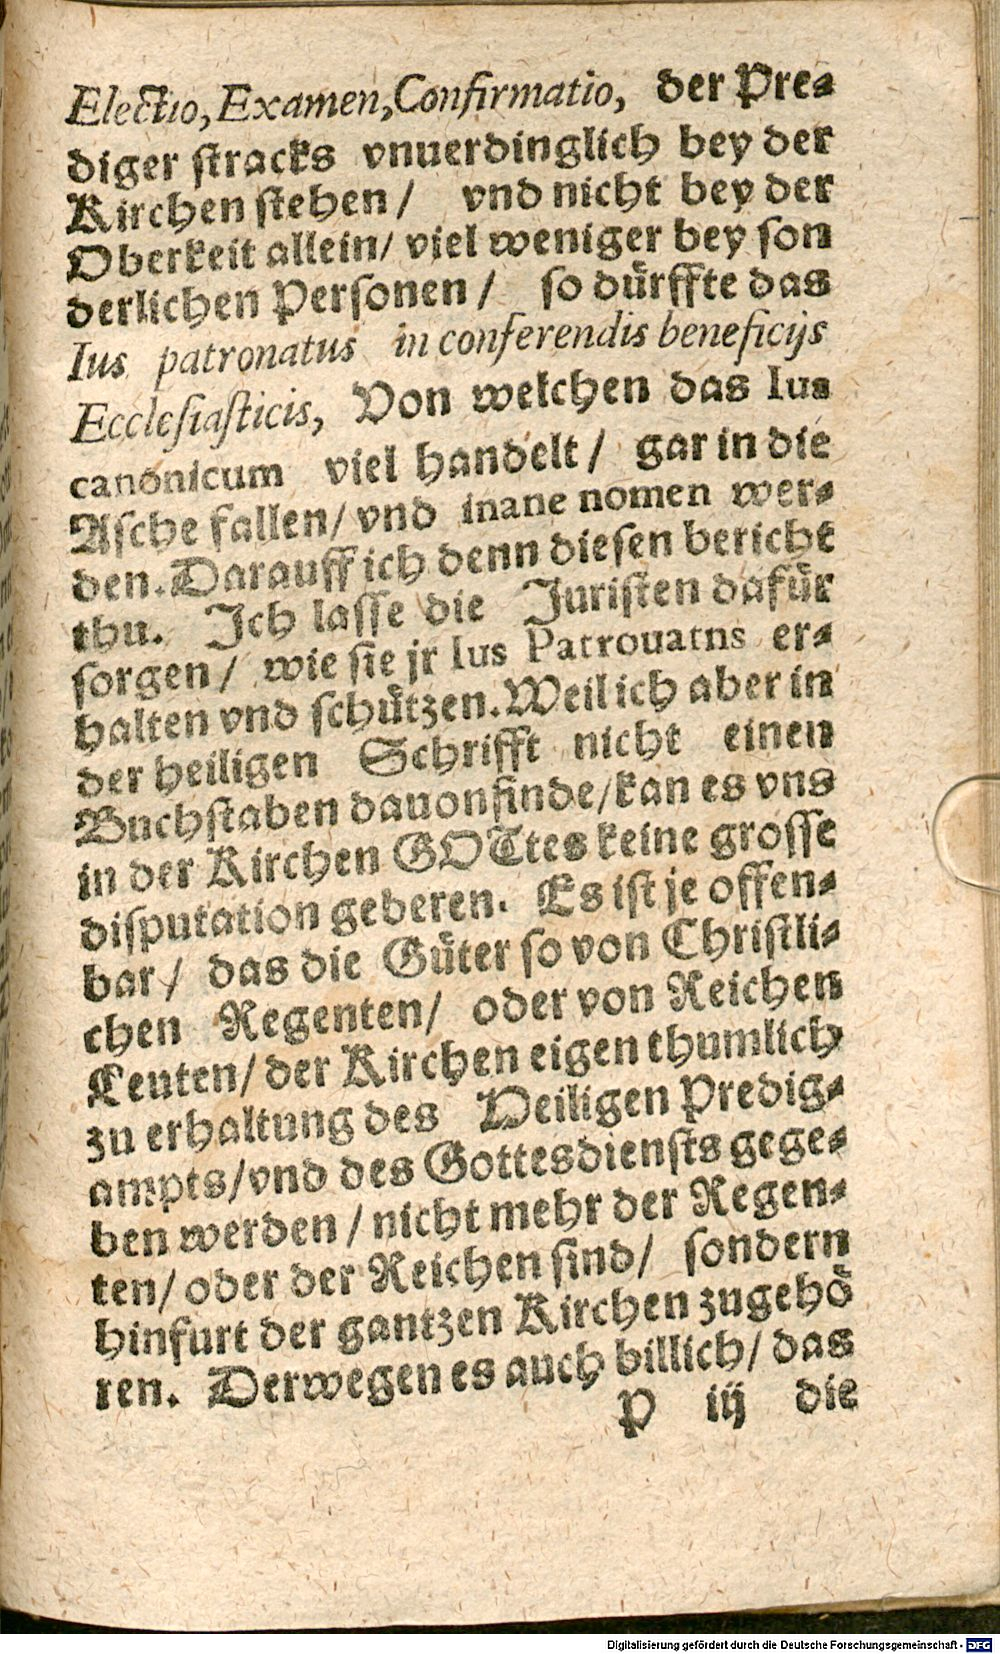 Electio, Examen, Confirmatio, der Pre⸗
diger stracks vnuerdinglich bey der
Kirchen stehen / vnd nicht bey der
Oberkeit allein / viel weniger bey son
derlichen Personen / so dürffte das
Ius patronatus in conferendis beneficijs
Ecclesiasticis, Von welchen das Ius
canonicum viel handelt / gar in die
Asche fallen / vnd inane nomen wer⸗
den. Darauff ich denn diesen bericht
thu. Ich lasse die Juristen dafür
sorgen / wie sie jr Ius Patrouatns er⸗
halten vnd schützen. Weil ich aber in
der heiligen Schrifft nicht einen
Buchstaben dauon finde / kan es vns
in der Kirchen GOTtes keine grosse
disputation geberen. Es ist je offen⸗
bar / das die Güter so von Christli⸗
chen Regenten / oder von Reichen
Leuten / der Kirchen eigenthumlich
zu erhaltung des Heiligen Predig⸗
ampts / vnd des Gottesdiensts gege⸗
ben werden / nicht mehr der Regen⸗
ten / oder der Reichen sind / sondern
hinfurt der gantzen Kirchen zugehö
ren. Derwegen es auch billich / das
P iij die
Digitalisierung gefördert durch die Deutsche Forschungsgemeinschaft - DFG